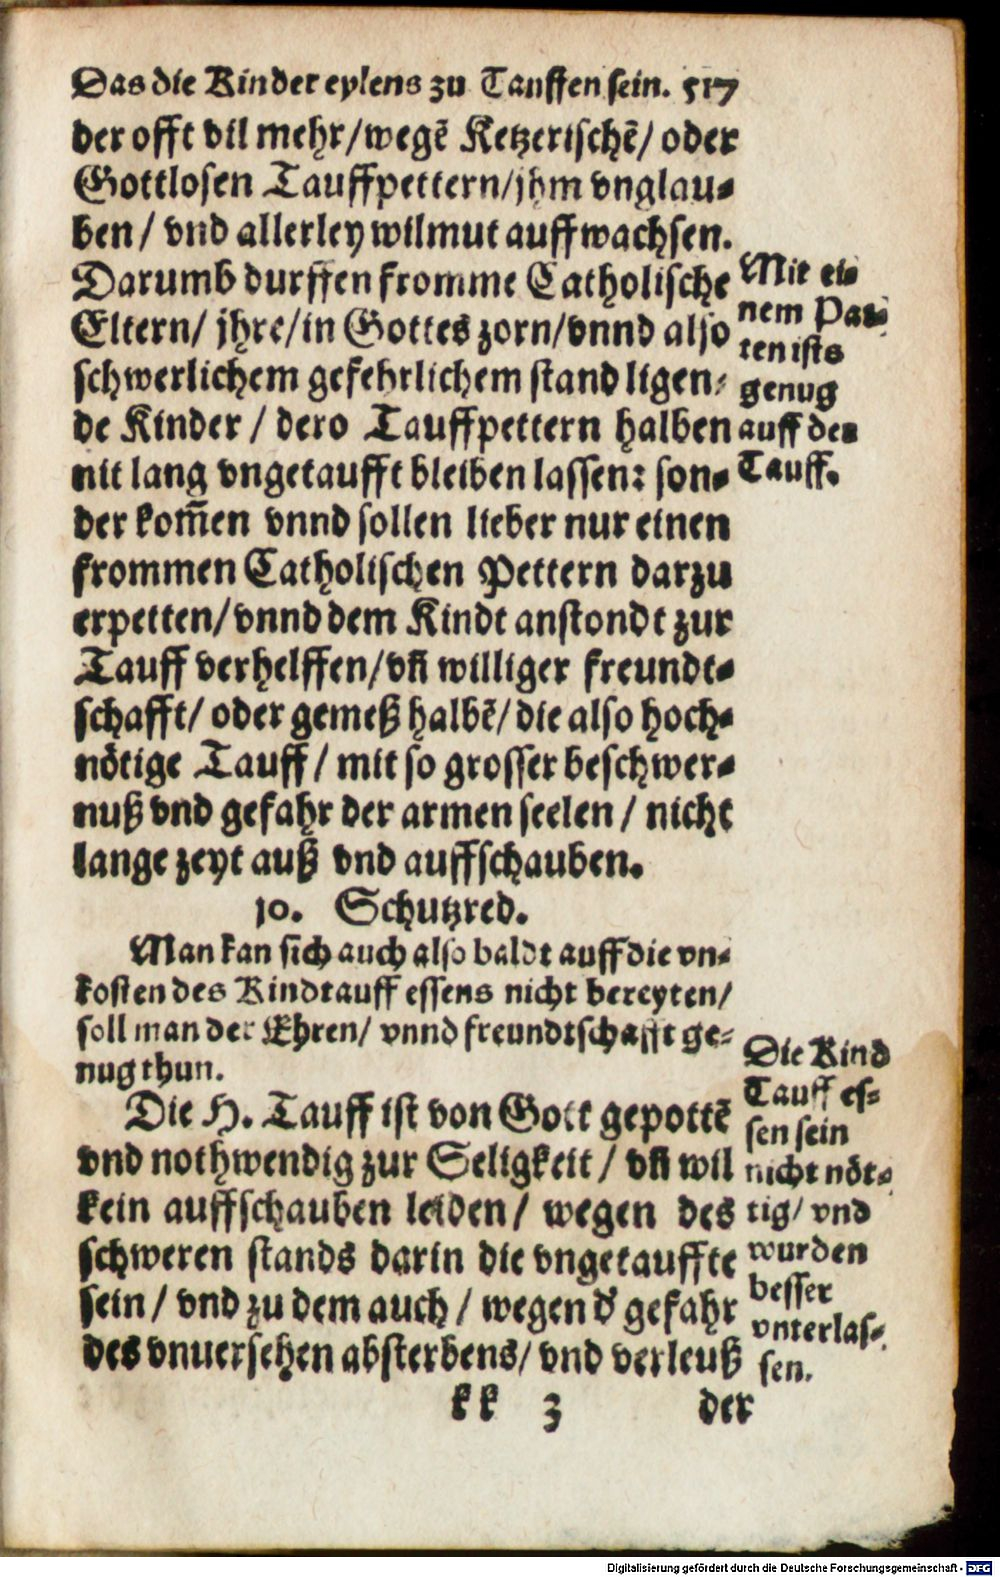 Das die Kinder eylens zu Tauffen sein. 517
der offt vil mehr/wegẽ Ketzerischẽ/ oder
Gottlosen Tauffpettern/jhm vnglau-
ben/ vnd allerley wilmut auffwachsen.
Darumb durffen fromme Catholische
Eltern/ jhre/in Gottes zorn/vnnd also
schwerlichem gefehrlichem stand ligen-
de Kinder / dero Tauffpettern halben
nit lang vngetaufft bleiben lassen: son-
der kom̃en vnnd sollen lieber nur einen
frommen Catholischen Pettern darzu
erpetten/vnnd dem Kindt anstondt zur
Tauff verhelffen/vñ williger freundt-
schafft/ oder gemeß halbẽ/die also hoch-
nötige Tauff/ mit so grosser beschwer-
nuß vnd gefahr der armen seelen / nicht
lange zeyt auß vnd auffschauben.
Mit ei-
nem Pat-
ten ists
genug
auff der
Tauff.
10. Schutzred.
Man kan sich auch also baldt auff die vn-
kosten des Kindtauff essens nicht bereyten/
soll man der Ehren/ vnnd freundtschafft ge-
nug thun.
Die H. Tauff ist von Gott gepottẽ
vnd nothwendig zur Seligkeit / vñ wil
kein auffschauben leiden/ wegen des
schweren stands darin die vngetauffte
sein / vnd zu dem auch / wegen d' gefahr
des vnuersehen absterbens/ vnd verleuß
Die Kind
Tauff es-
sen sein
nicht nöt-
tig/ vnd
wurden
besser
vnterlas-
sen.
kk 3 der
Digitalisierung gefördert durch die Deutsche Forschungsgemeinschaft - DFG